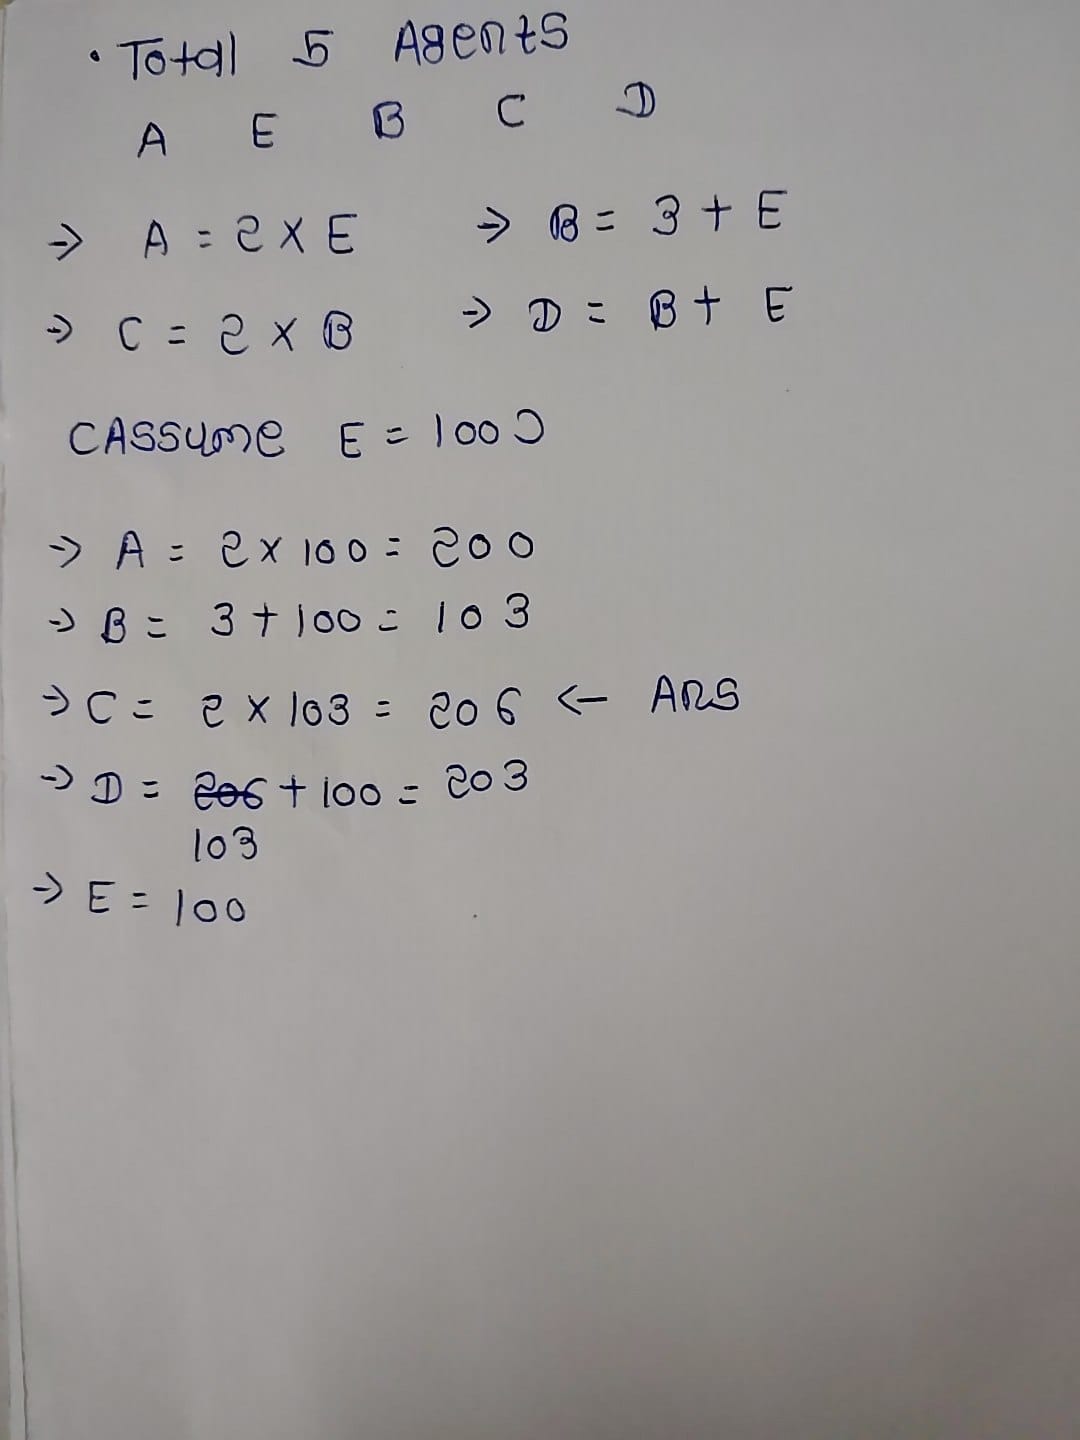 • Total 5 Agents
A E B C D
→ A = 2 x E → B = 3 + E
→ C = 2 x B → D = B + E
(Assume E = 100)
→ A = 2 x 100 = 200
→ B = 3 + 100 = 103
→ C = 2 x 103 = 206 ← Ans
→ D = 206 + 100 = 203
103
→ E = 100